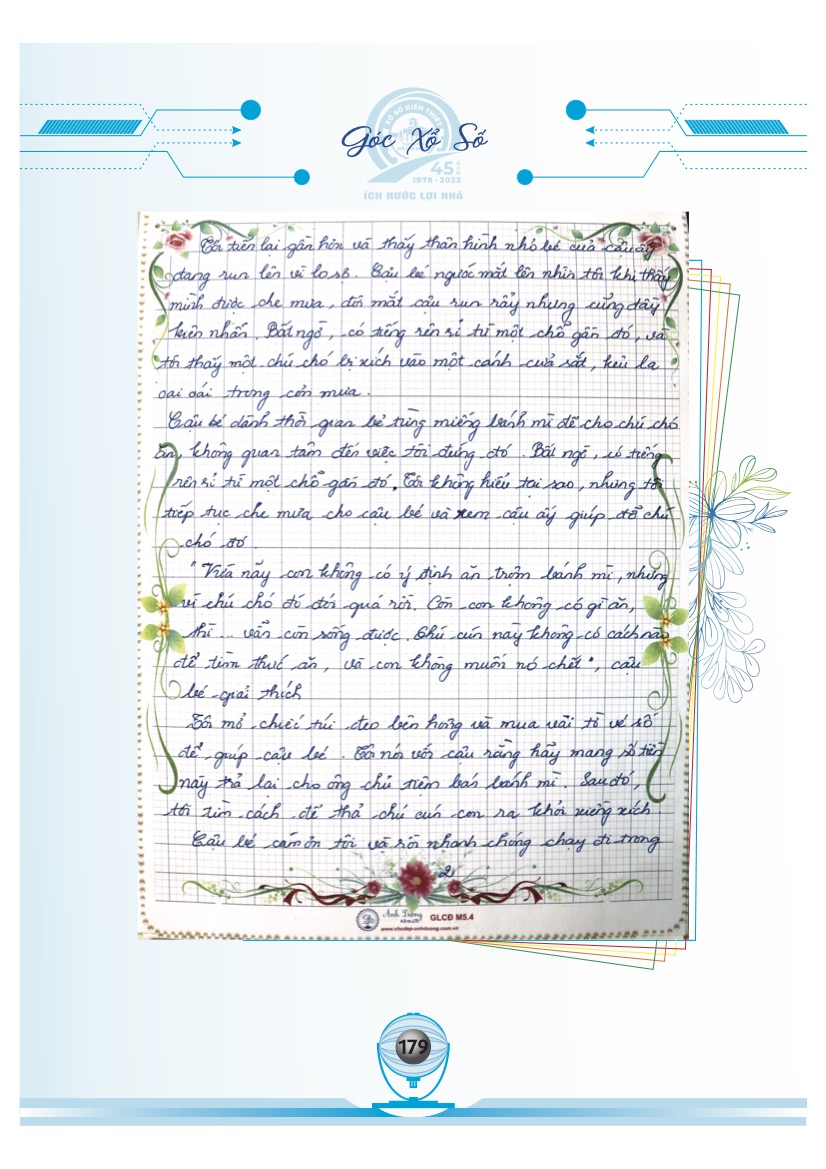 XỔ SỐ KIẾN THIẾT
Góc Xổ Số
45 NĂM
1978 - 2023
ÍCH NƯỚC LỢI NHÀ
Tôi tiến lại gần hơn và thấy thân hình nhỏ bé của cậu ấy
đang run lên vì lo sợ. Cậu bé ngước mắt lên nhìn tôi khi thấy
mình được che mưa, đôi mắt cậu run rẩy nhưng cũng đầy
kiên nhẫn. Bất ngờ, có tiếng rên rỉ từ một chỗ gần đó, và
tôi thấy một chú chó bị xích vào một cánh cửa sắt, kêu la
oai oái trong cơn mưa.
Cậu bé dành thời gian bẻ từng miếng bánh mì để cho chú chó
ăn, không quan tâm đến việc tôi đứng đó. Bất ngờ, có tiếng
rên rỉ từ một chỗ gần đó. Tôi không hiểu tại sao, nhưng tôi
tiếp tục che mưa cho cậu bé và xem cậu ấy giúp đỡ chú
chó đó.
"Vừa nãy con không có ý định ăn trộm bánh mì, nhưng
vì chú chó đó đói quá rồi. Còn con không có gì ăn,
thì... vẫn còn sống được. Chú cún này không có cách nào
để tìm thức ăn, và con không muốn nó chết", cậu
bé giải thích
Tôi mở chiếc túi đeo bên hông và mua vài tờ vé số
để giúp cậu bé. Tôi nói với cậu rằng hãy mang số tiền
này trả lại cho ông chủ tiệm bán bánh mì. Sau đó,
tôi tìm cách để thả chú cún con ra khỏi xiềng xích
Cậu bé cảm ơn tôi và rồi nhanh chóng chạy đi trong
2
Ánh Dương
GLCĐ M5.4
www.chudep-anhduong.com.vn
179